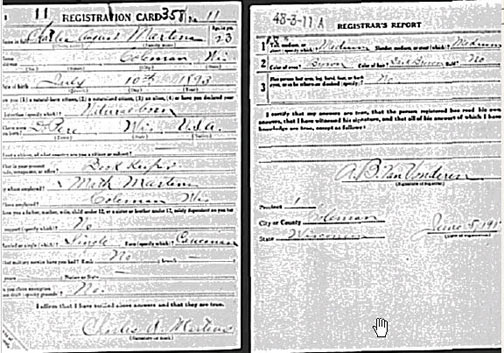 11 REGISTRATION CARD 358 No. 11
August Martens 23
Coleman Wis
Date of birth July 10th 1893
Are you (1) a natural-born citizen, (2) a naturalized citizen, (3) an alien, (4) or have you declared your
intention (specify which)? Natural born
De Pere Wis USA
If not a citizen, of what country are you a citizen or subject?
Book Keeper
By whom employed? Math Martens
Where employed? Coleman Wis
Have you a father, mother, wife, child under 12, or a sister or brother under 12, solely dependent on you for
support (specify which)? No
Married or single (which)? Single Race (specify which)? Caucasian
What military service have you had? Rank No branch
years Nation or State
No
I affirm that I have verified above answers and that they are true.
Charles A. Martens
(Signature or mark)
48-3-11 A
REGISTRAR'S REPORT
1 Tall, medium, or short (specify which)? Medium Slender, medium, or stout (which)? Medium
2 Color of eyes? Brown Color of hair? Brown Bald? No
3 Has person lost arm, leg, hand, foot, or both
No
I certify that my answers are true, that the person registered has read his own
answers, that I have witnessed his signature, and that all of his answers of which I have
knowledge are true, except as follows:
A. B. Van Vonderen
(Signature of registrar)
Precinct 1
City or County Coleman
State Wisconsin June 5, 191
(Date of registration)